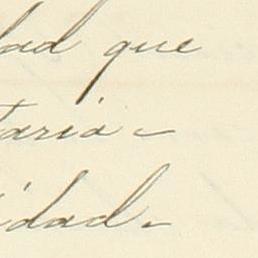 dad que
taria-
idad-